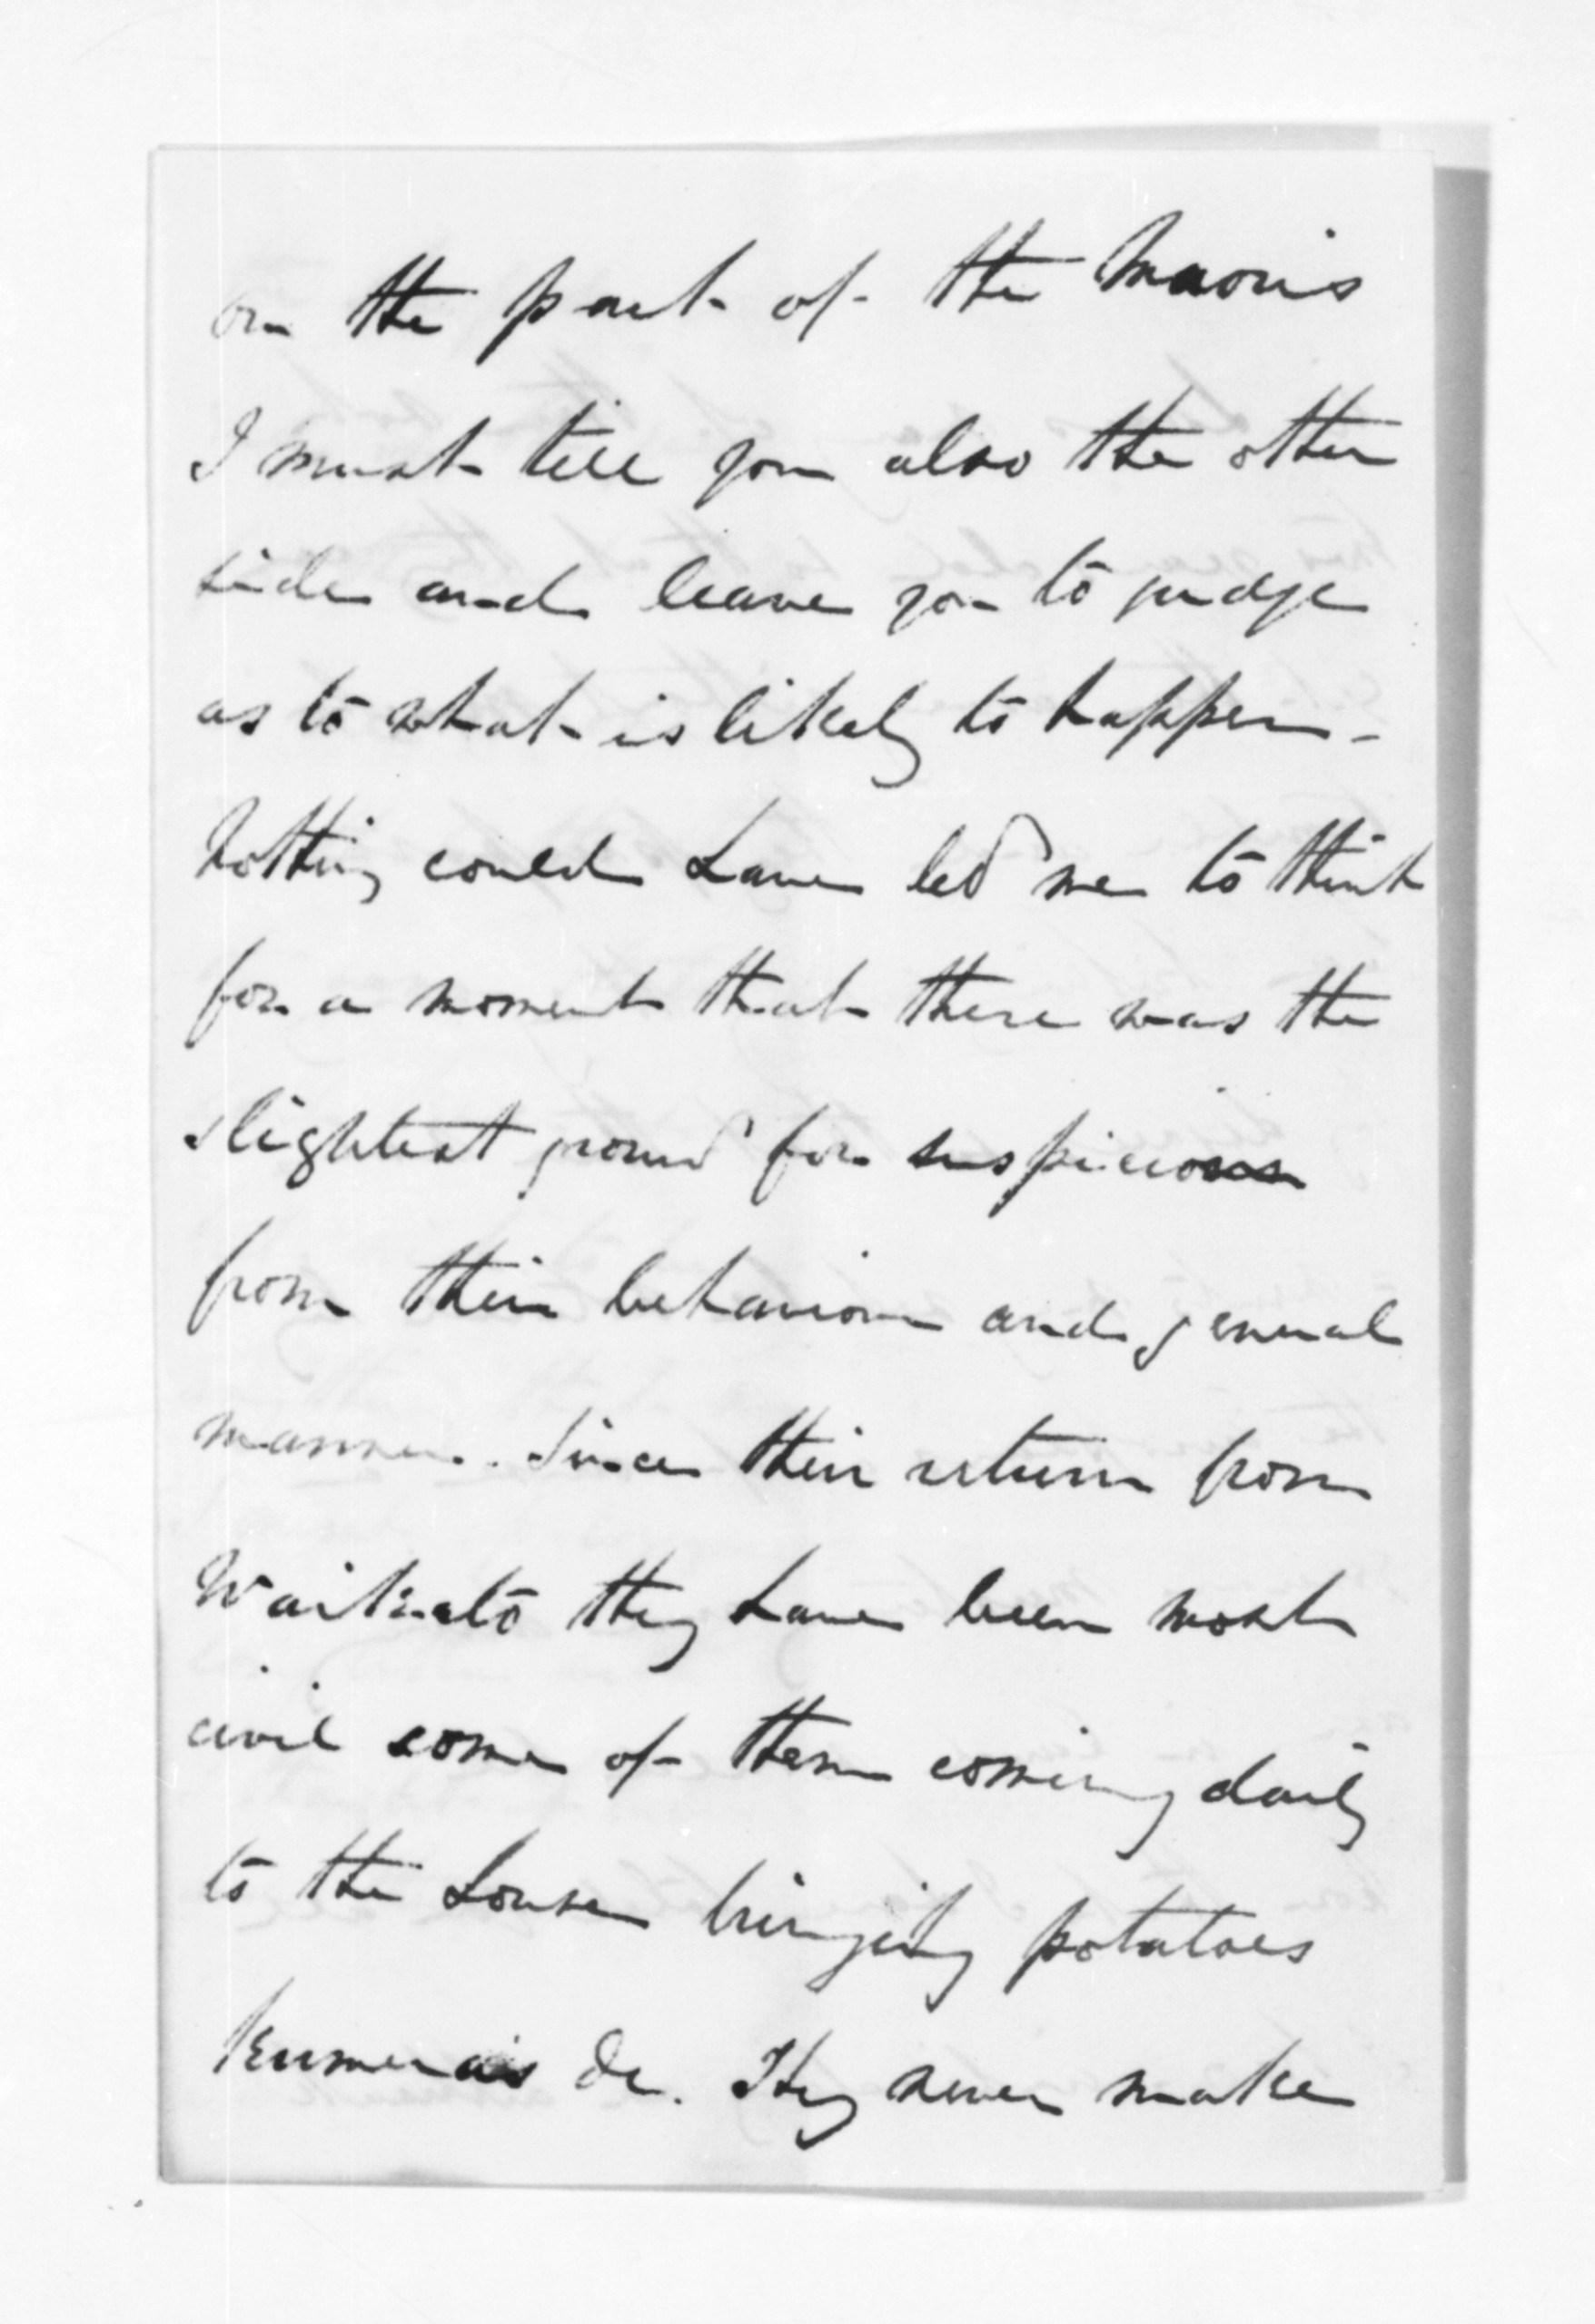 on the part of the Maoris
I must tell you also the other
side and leave you to judge
as to what is likely to happen -
Nothing could have led me to think
for a moment that there was the
slightest ground for suspicion
from their behaviour and general
manner. Since their return from
Waikato they have been most
civil some of them coming daily
to the house bringing potatoes
Kumeras &c. They never make